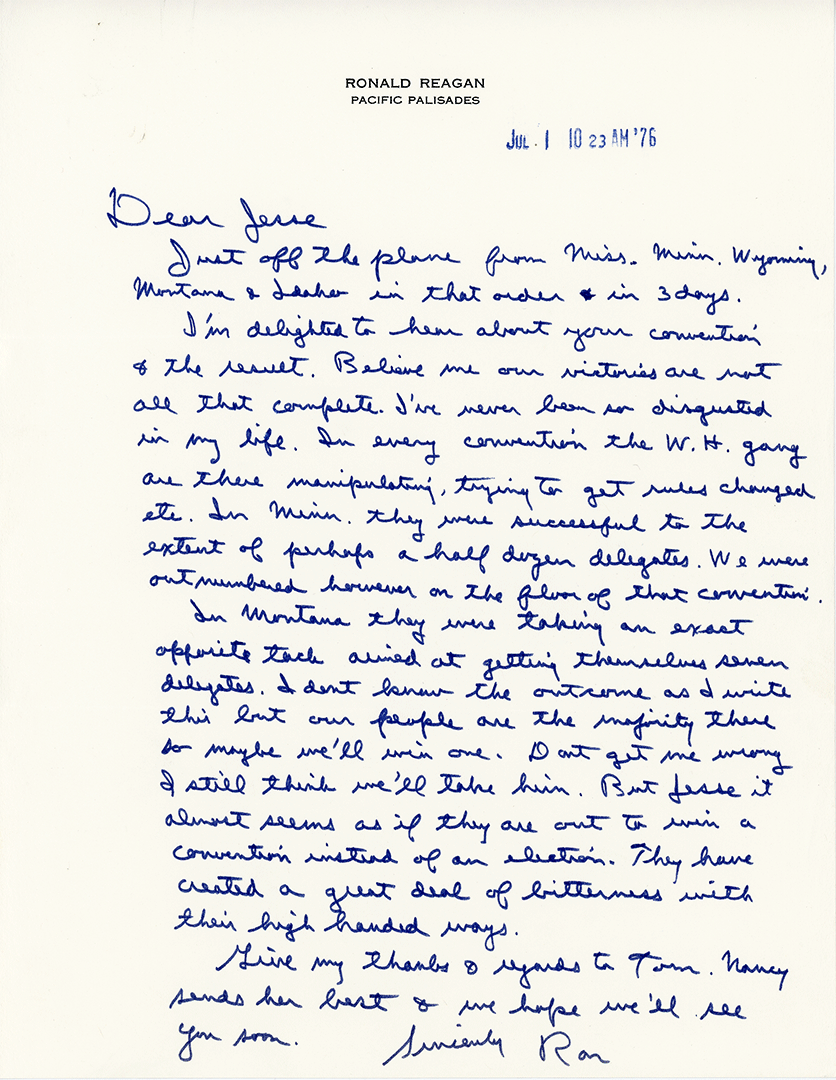 RONALD REAGAN
PACIFIC PALISADES
JUL. 1 10 23 AM '76
Dear Jesse
Just off the plane from Miss. Minn. Wyoming,
Montana & Idaho in that order & in 3 days.
I'm delighted to hear about your convention
& the result. Believe me our victories are not
all that complete. I've never been so disgusted
in my life. In every convention the W.H. gang
are there manipulating, trying to get rules changed
etc. In Minn. they were successful to the
extent of perhaps a half dozen delegates. We were
outnumbered however on the floor of that convention.
In Montana they were taking an exact
opposite tack aimed at getting themselves seven
delegates. I dont know the outcome as I write
this but our people are the majority there
so maybe we'll win one. Dont get me wrong
I still think we'll take him. But Jesse it
almost seems as if they are out to win a
convention instead of an election. They have
created a great deal of bitterness with
their high handed ways.
Give my thanks & regards to Tom. Nancy
sends her best & we hope we'll see
you soon.
Sincerely Ron